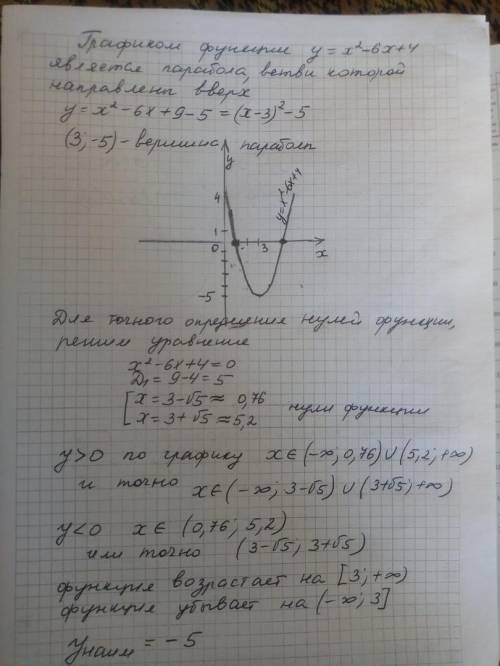 Графиком функции y = x² - 6x + 4
является парабола, ветви которой
направлены вверх
y = x² - 6x + 9 - 5 = (x - 3)² - 5
(3; -5) - вершина параболы
y
4
y = x² - 6x + 4
1
0 3 x
-5
Для точного определения нулей функции,
решим уравнение
x² - 6x + 4 = 0
D₁ = 9 - 4 = 5
[ x = 3 - √5 ≈ 0,76
x = 3 + √5 ≈ 5,2 нули функции
y > 0 по графику x ∈ (-∞; 0,76) ∪ (5,2; +∞)
и точно x ∈ (-∞; 3-√5) ∪ (3+√5; +∞)
y < 0 x ∈ (0,76; 5,2)
или точно (3-√5; 3+√5)
функция возрастает на [3; +∞)
функция убывает на (-∞; 3]
y наим = -5